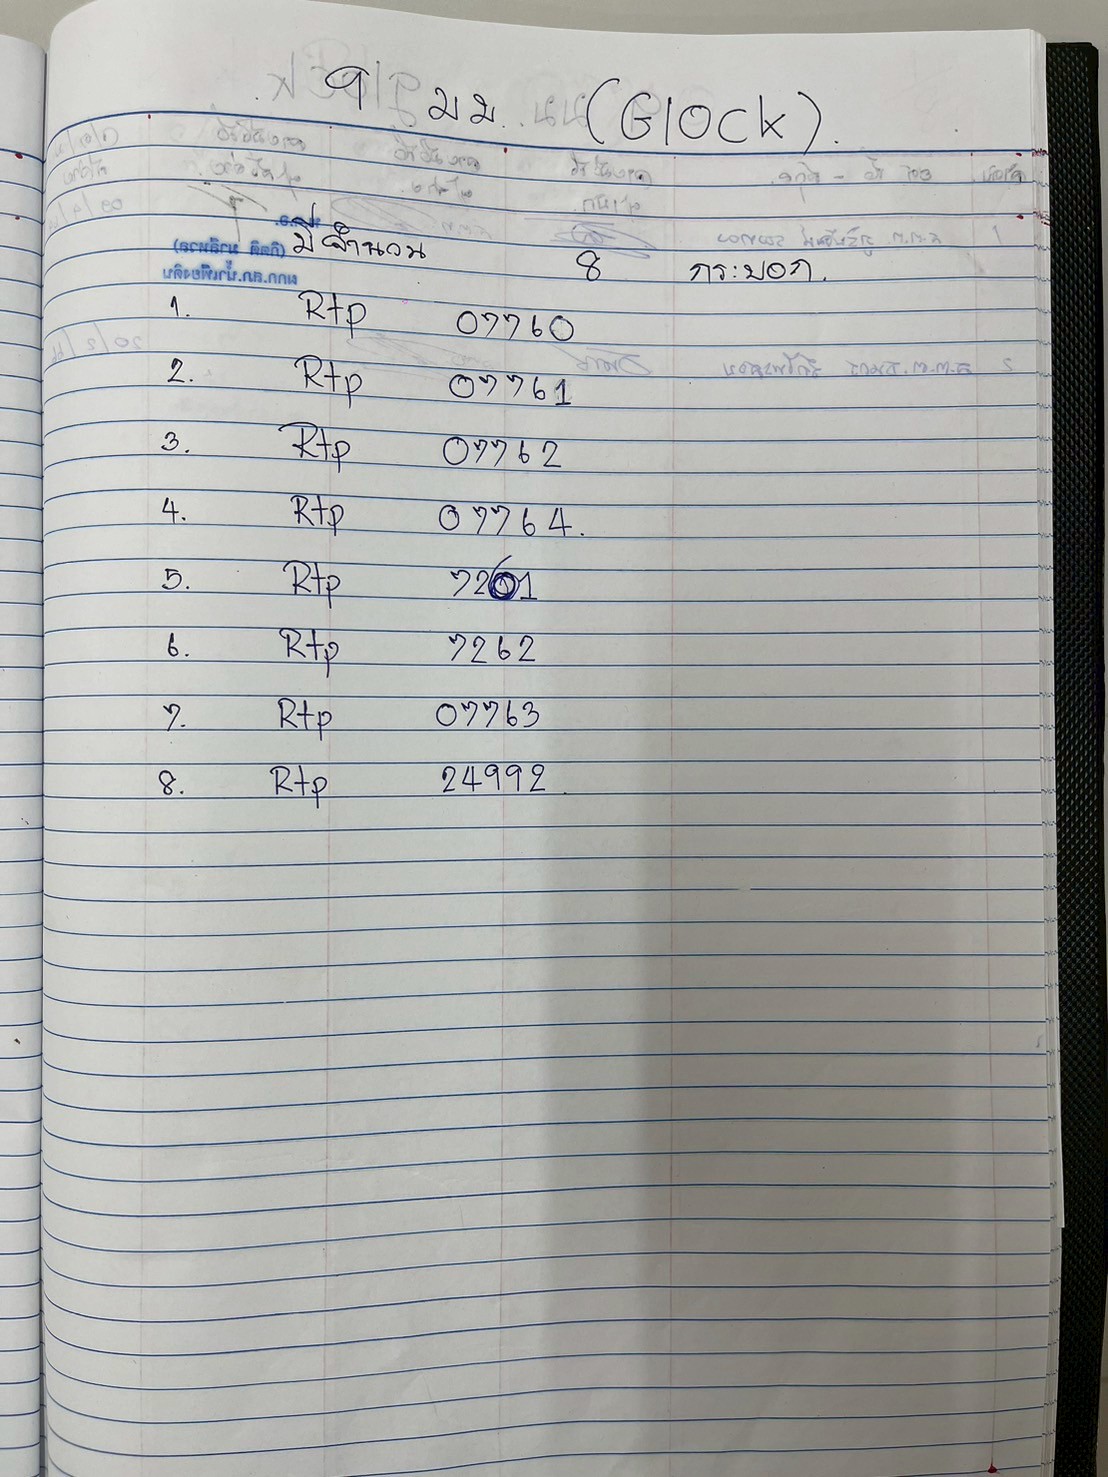 9 มม. (Glock).
มีจำนวน 8 กระบอก.
1. Rtp 07760
2. Rtp 07761
3. Rtp 07762
4. Rtp 07764.
5. Rtp 7261
6. Rtp 7262
7. Rtp 07763
8. Rtp 24992